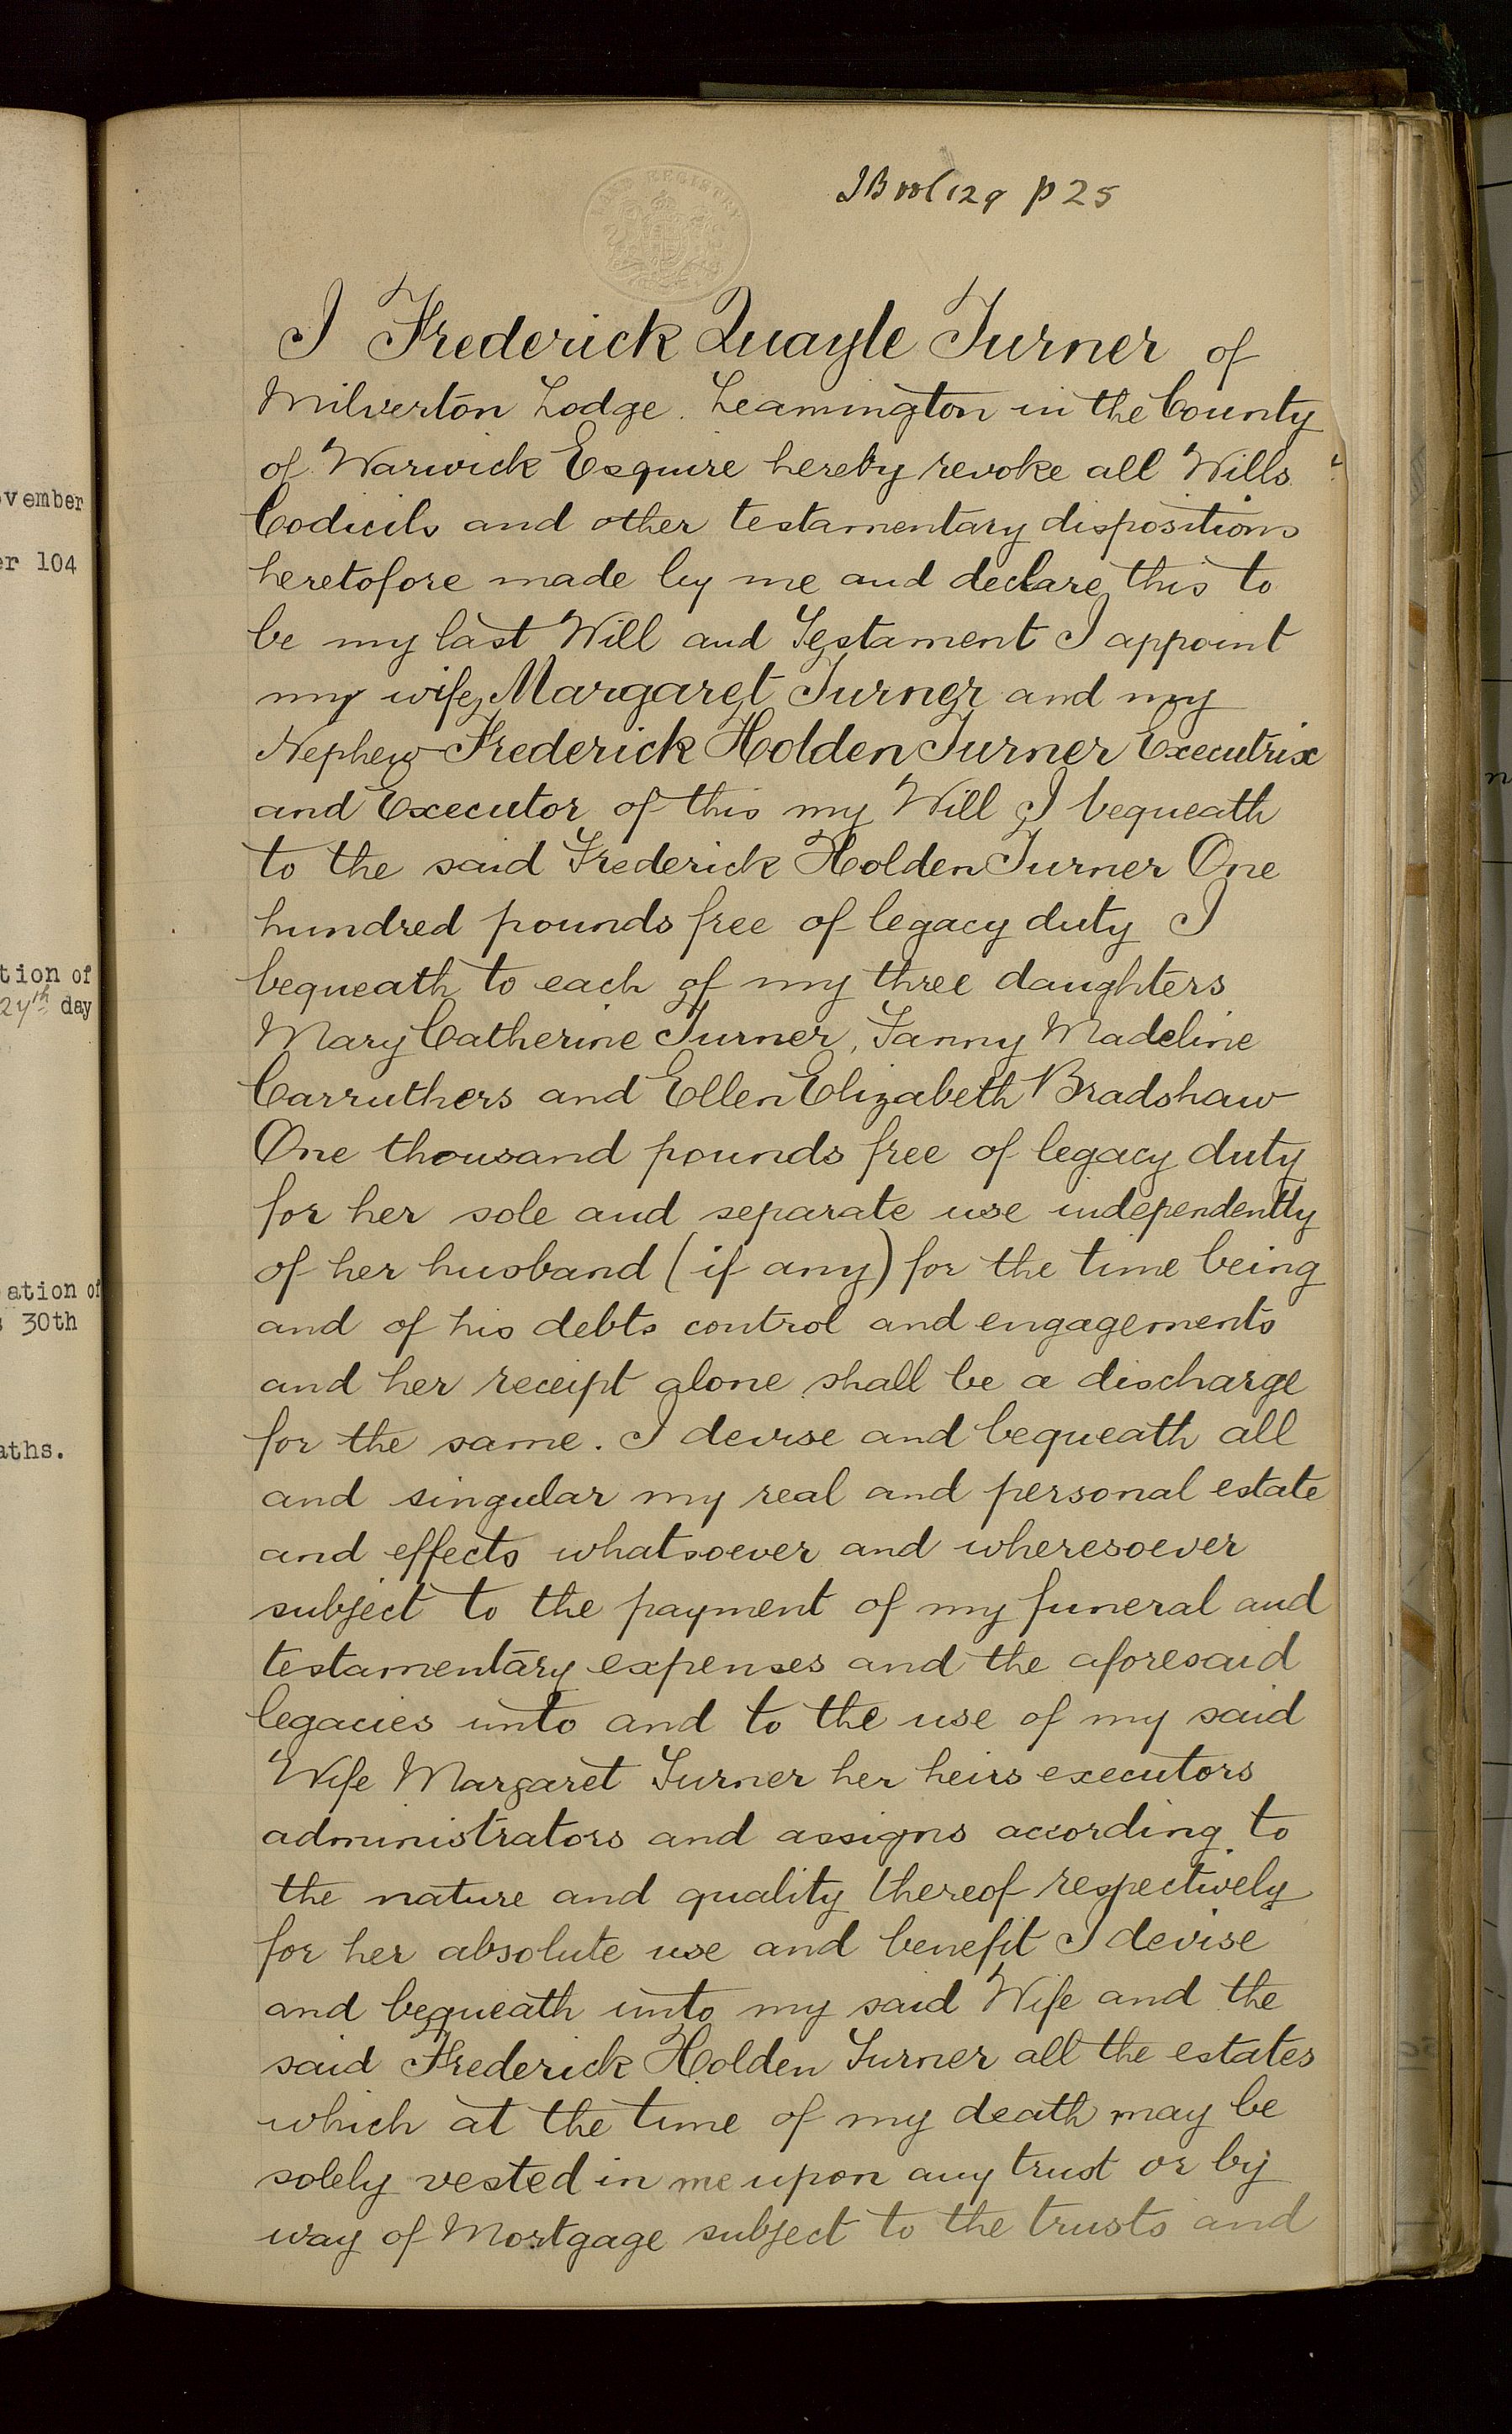 p 25
LAND REGISTRY
I Frederick Quayle Turner of
Milverton Lodge. Leamington in the County
of Warwick Esquire hereby revoke all Wills
Codicils and other testamentary dispositions
heretofore made by me and declare this to
be my last Will and Testament I appoint
my wife Margaret Turner and my
Nephew Frederick Holden Turner Executrix
and Executor of this my Will I bequeath
to the said Frederick Holden Turner One
hundred pounds free of legacy duty I
bequeath to each of my three daughters
Mary Catherine Turner, Fanny Madeline
Carruthers and Ellen Elizabeth Bradshaw
One thousand pounds free of legacy duty
for her sole and separate use independently
of her husband (if any) for the time being
and of his debts control and engagements
and her receipt alone shall be a discharge
for the same. I devise and bequeath all
and singular my real and personal estate
and effects whatsoever and wheresoever
subject to the payment of my funeral and
testamentary expenses and the aforesaid
legacies unto and to the use of my said
Wife Margaret Turner her heirs executors
administrators and assigns according to
the nature and quality thereof respectively
for her absolute use and benefit I devise
and bequeath unto my said Wife and the
said Frederick Holden Turner all the estates
which at the time of my death may be
solely vested in me upon any trust or by
way of Mortgage subject to the trusts and
vember
er 104
tion of
27th day
ation of
s 30th
aths.